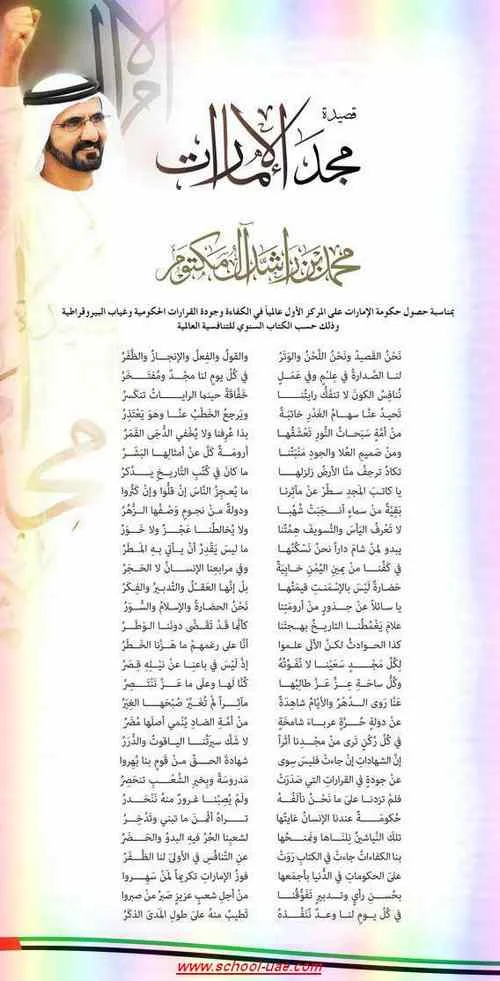 قصيدة
مجد الإمارات
محمد بن راشد آل مكتوم
بمناسبة حصول حكومة الإمارات على المركز الأول عالمياً في الكفاءة وجودة القرارات الحكومية وغياب البيروقراطية
وذلك حسب الكتاب السنوي للتنافسية العالمية
نَحْنُ القَصيدُ ونَحْنُ اللَّحْنُ والوَتَرُ والقولُ والفِعلُ والإنجازُ والظَّفَرُ
لنـا الصَّدارةُ في عِلـمٍ وفي عَمَـلٍ في كُلِّ يومٍ لنا مجـدٌ ومُفتَـخَرُ
نُنافِسُ الكونَ لا تنفَكُّ رايتُنـا خَفَّاقةً حينما الراياتُ تنكسرُ
تَحيدُ عنَّا سهامُ الغَدْرِ خائبَةً ويَرجعُ الخَطْبُ عنَّـا وهوَ يَعْتَذِرُ
منْ أُمَّةٍ سَبَحاتُ النُّورِ تَعْشَقُهـا بذا عُرِفنا ولا يُخْفي الدُّجَى القَمَرُ
ومنْ صَميمِ العُلا والجودِ مَنْبَتُنـا أرومَةٌ كَلَّ عنْ أمثالِهـا البَشَـرُ
تكادُ ترجفُ منَّا الأرضُ زلزلهـا ما كانَ في كُتُبِ التَّاريخِ يـدَّكرُ
يا كاتبَ المَجدِ سطِّرْ عنْ مآثِرِنا ما يُعجِزُ النَّاسَ إنْ قلُّوا وإنْ كَثُروا
بَقِيَّةٌ منْ سماءٍ أنـجَبَتْ شُهُبـاً ودولةٌ منْ نجومٍ وَصْفُها الزُّهُرُ
لا تَعْرِفُ اليَأسَ والتَّسويفَ هِمَّتُنا ولا يُخالطُنـا عَجْـزٌ ولا خَـوَرُ
يبدو لمنْ شامَ داراً نحنُ نَسْكُنُهـا ما ليسَ يَقْدِرُ أنْ يـأتي بـهِ المَـطَرُ
في كَفِّنا منْ يمينِ اليُمْنِ خابيَةٌ وفي مرابعِنا الإنسـانُ لا الحَجَـرُ
حضارةٌ لَيْسَ بالإسْمَنتِ قيمَتُهـا بلْ إنَّها العَقـلُ والتَّدبيرُ والفِكَـرُ
يا سائلاً عنْ جـذورٍ منْ أرومَتِنا نَحْنُ الحضارةُ والإسلامُ والسُّوَرُ
علامَ يَغمُطُنـا التاريخُ بهـجتَنـا كأنَّما قَدْ تَقَضَّى دولَنـا الوَطَـرُ
كذا الحوادثُ لكنَّ الأُلى علمـوا أنَّا على رغمهِمْ ما هَزَّنا الخَطَرُ
لِكُلِّ مَجْدٍ سَعَيْنـا لا تُفَوِّتُهُ إذْ لَيْسَ في باعِنـا عنْ نَيْلِهِ قِصَرُ
وكُلُّ ساحَـةِ عِـزٍّ عَزَّ طالِبُهـا كُنَّا لَهـا وعلَى ما عَـزَّ نَنْتَصِـرُ
عَنَّا رَوَى الدَّهْرُ والأيَّامُ شاهِدَةٌ مآثـراً لمْ تُغَيِّرْ صُبْحَهـا الغِيَرُ
عنْ دولةٍ حُـرَّةٍ عربـاءَ شامخَةٍ منْ أُمَّةِ الضادِ يُنْمي أصلَها مُضَرُ
في كُلِّ رُكْنٍ تَرى منْ مَجْـدِنا أثَراً لا شَكَّ سيرَتُنـا الياقوتُ والدُّرَرُ
إنَّ الشهاداتِ إنْ جاءتْ فليسَ سِوى شهادةِ الحـقِّ مـنْ قومٍ بنا بُهِروا
عنْ جودةٍ في القراراتِ التي صَدَرَتْ مَدروسَةً وبِخَيرِ الشَّعْـبِ تنحَصِرُ
فلمْ تزدنا علَى ما نَحْنُ نألَفُـهُ ولَمْ يُصِبْنـا غـرورٌ منهُ نَنْحَـدِرُ
حُكومَـةٌ عندنا الإنسانُ غايَتُها تـراهُ أثْمَـنَ ما تبني وتَدَّخِـرُ
تلكَ النَّياشينُ نِلنـاهَا ونَمنـحُها لشعبِنا الحُرِّ فيهِ البدوُ والحَضَرُ
بنا الكفاءاتُ جاءتْ في الكتابِ رَوَتْ عنِ التَّنافُسِ في الأولَى لنا الظَّفَرُ
علَى الحكوماتِ في الدُّنيا بأجمَعِها فوزُ الإماراتِ تكريماً لمَنْ سَهِـروا
بحُسـنِ رأيٍ وتـدبيرٍ تَفَوُّقُنـا منْ أجلِ شعبٍ عزيزٍ صَبْرُ منْ صبروا
في كُلِّ يـومٍ لنـا وعـدٌ نُنَفِّـذُهُ تَطيبُ منهُ علَى طولِ المَدَى الذِّكَرُ
www.school-uae.com